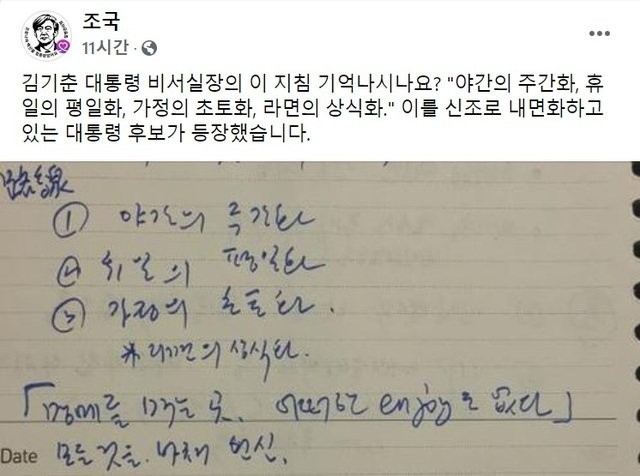 조국
11시간 ·
김기춘 대통령 비서실장의 이 지침 기억나시나요? "야간의 주간화, 휴
일의 평일화, 가정의 초토화, 라면의 상식화." 이를 신조로 내면화하고
있는 대통령 후보가 등장했습니다.
路線
① 야간의 주간화
② 휴일의 평일화
③ 가정의 초토화.
※ 라면의 상식화.
「명예를 먹는 곳. 어떠한 enjoy도 없다」
Date 모든 것을 바쳐 헌신.